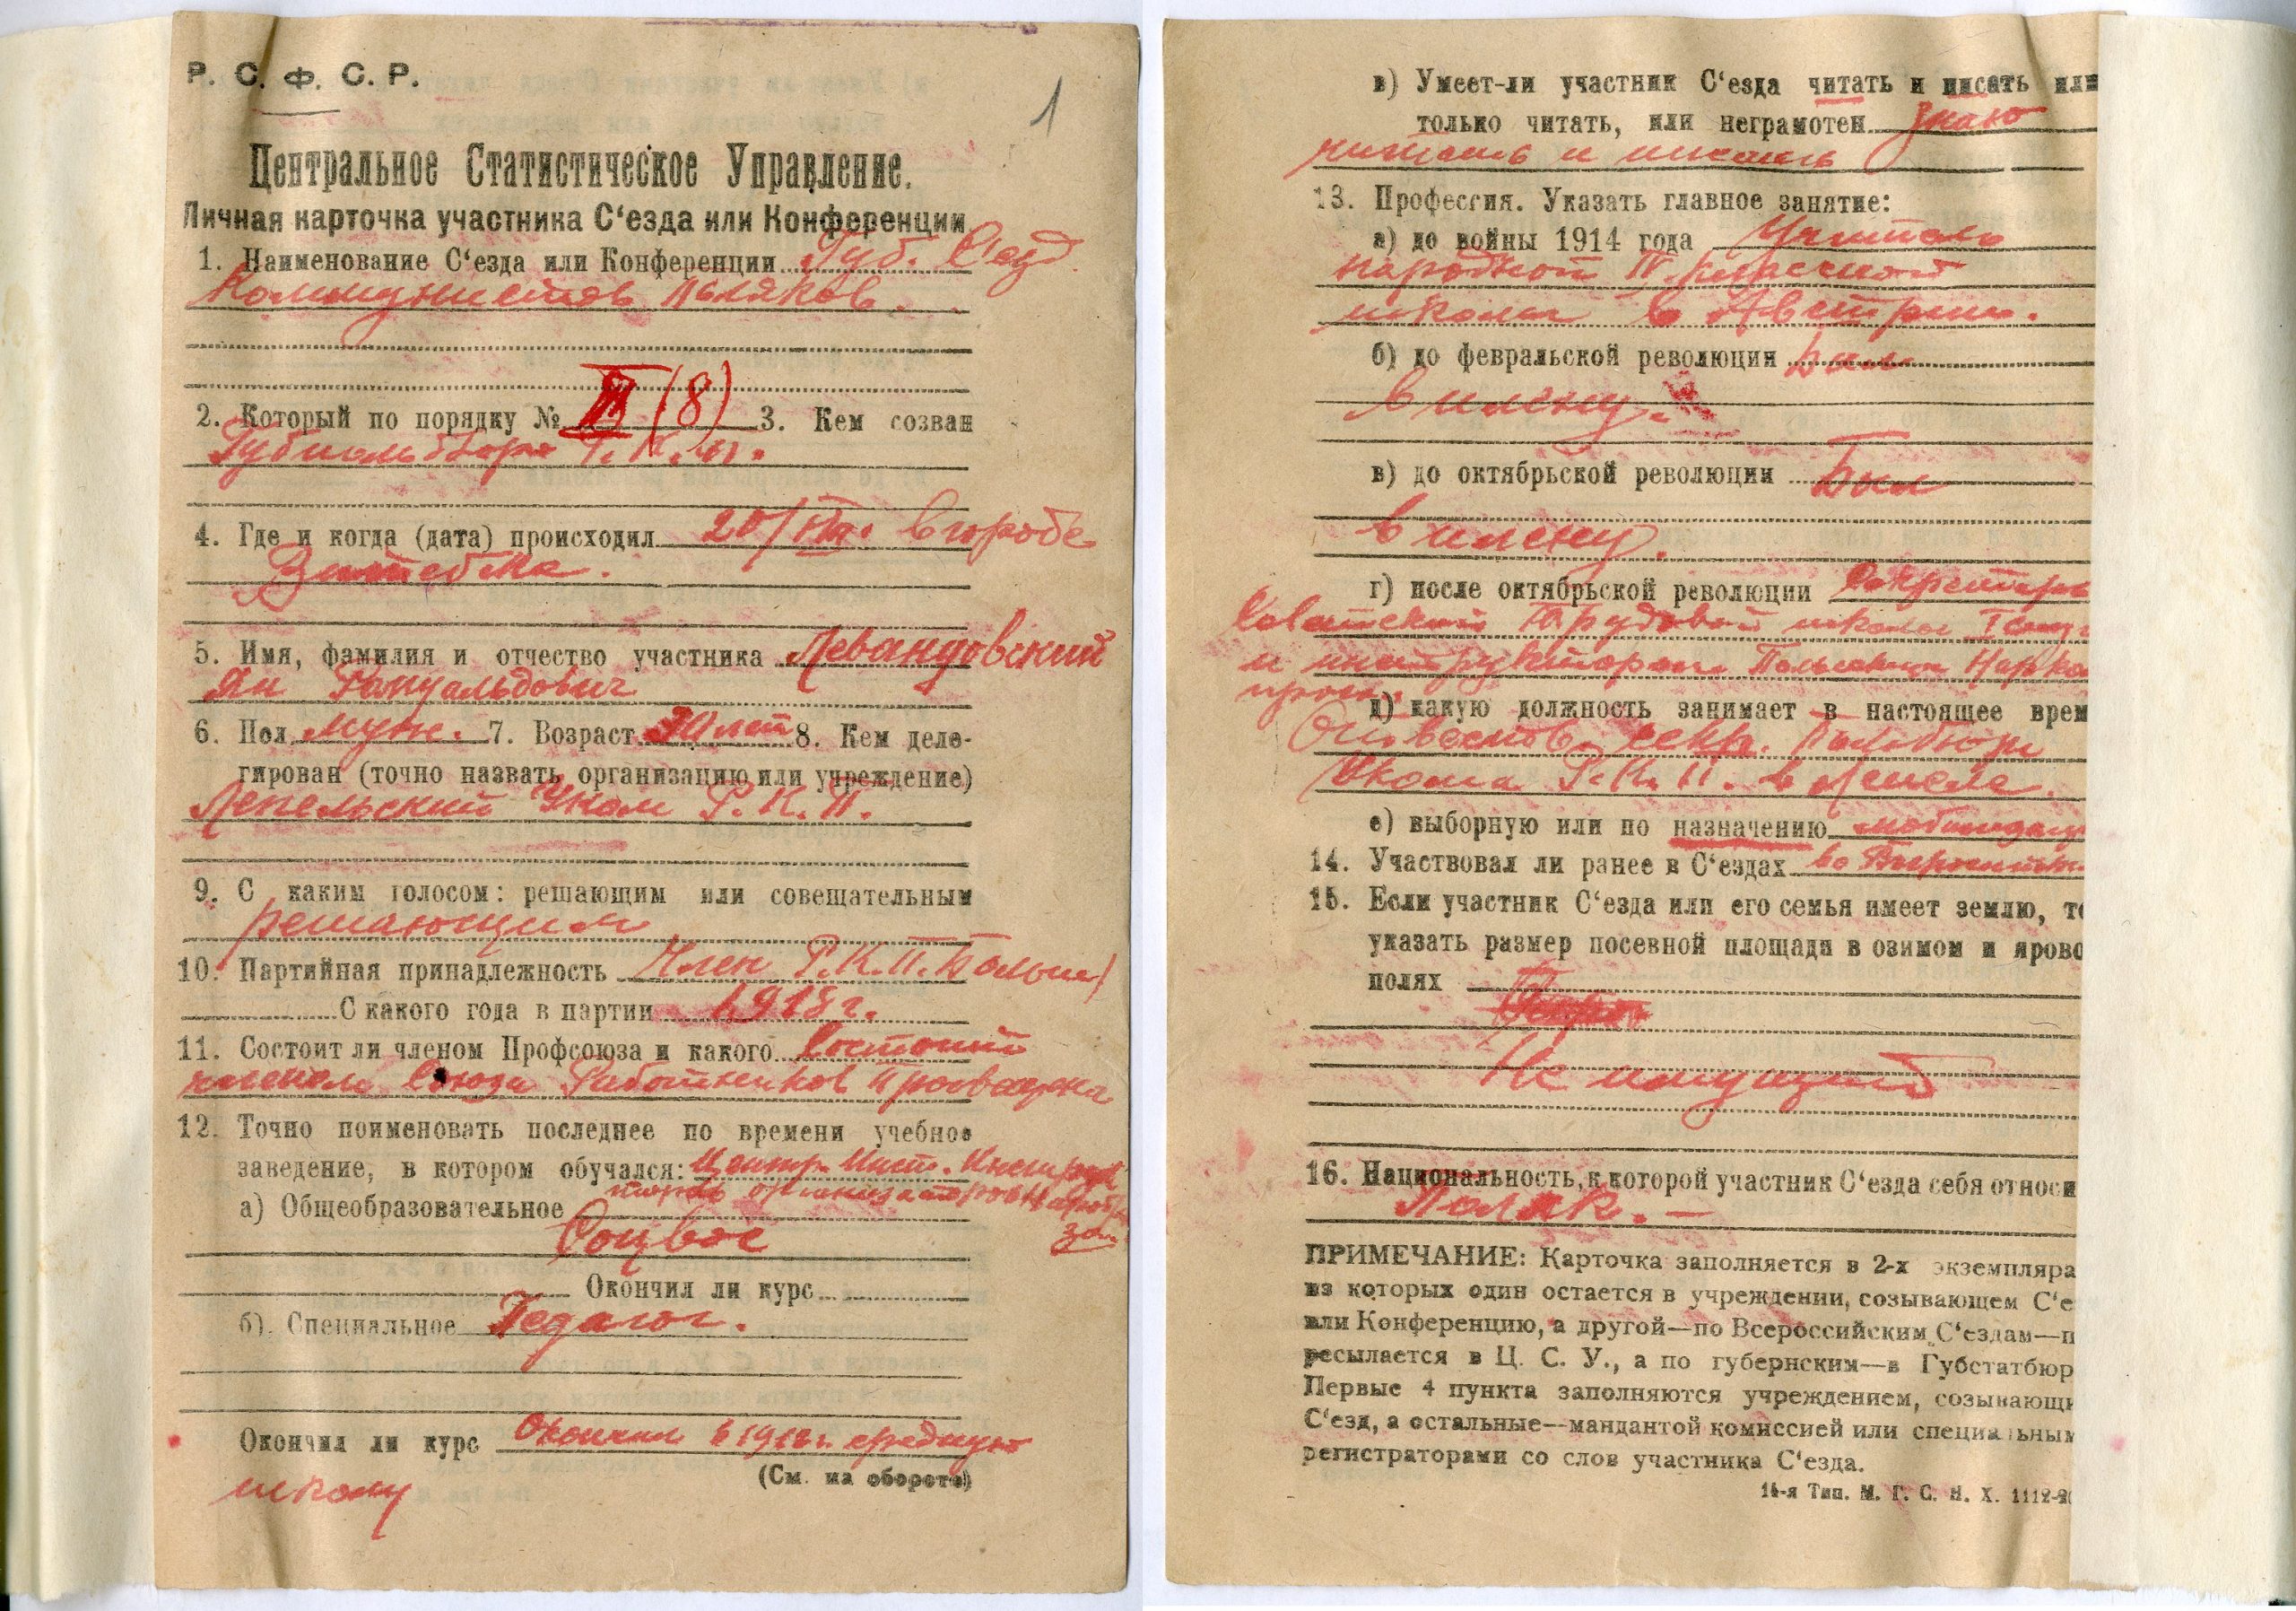 Р. С. Ф. С. Р.
1
Центральное Статистическое Управление.
Личная карточка участника С‘езда или Конференции
1. Наименование С‘езда или Конференции Губ. С'езд
Коммунистов поляков.
2. Который по порядку № (8) 3. Кем созван
Губпольбюро Р. К. П.
4. Где и когда (дата) происходил 20/VIII. в городе
Витебске.
5. Имя, фамилия и отчество участника Левандовский
Ян Ромуальдович
6. Пол муж. 7. Возраст 30 лет 8. Кем деле-
гирован (точно назвать организацию или учреждение)
Лепельский Уком Р. К. П.
9. С каким голосом: решающим или совещательным
решающим
10. Партийная принадлежность Член Р.К.П.
С какого года в партии 1918 г.
11. Состоит ли членом Профсоюза и какого Состоит
членом Союза Работников Просвещения
12. Точно поименовать последнее по времени учебное
заведение, в котором обучался: Центр. Инст.
торов организаторов
а) Общеобразовательное
Соцвос
Окончил ли курс
б) Специальное Педагог.
Окончил ли курс Окончил в среднюю
(См. на обороте)
школу
в) Умеет-ли участник С‘езда читать и писать или
только читать, или неграмотен Знаю
читать и писать
13. Профессия. Указать главное занятие:
а) до войны 1914 года Учитель
народной IV классной
школы в Австрии.
б) до февральской революции Был
в плену.
в) до октябрьской революции Был
в плену.
г) после октябрьской революции Секретарь
Советской Трудовой школы
и инструктором Нарком
проса.
д) какую должность занимает в настоящее врем
секр. Польбюро
Укома Р. К. П. в Лепеле.
е) выборную или по назначению
14. Участвовал ли ранее в С‘ездах во
15. Если участник С‘езда или его семья имеет землю, то
указать размер посевной площади в озимом и ярово
полях
Не имущий
16. Национальность, к которой участник С‘езда себя относи
Поляк. —
ПРИМЕЧАНИЕ: Карточка заполняется в 2-х экземпляра
из которых один остается в учреждении, созывающем С‘е
или Конференцию, а другой—по Всероссийским С‘ездам—п
ресылается в Ц. С. У., а по губернским—в Губстатбюр
Первые 4 пункта заполняются учреждением, созывающи
С‘езд, а остальные—мандатной комиссией или специальным
регистраторами со слов участника С‘езда.
14-я Тип. М. Г. С. Н. Х. 1112-20